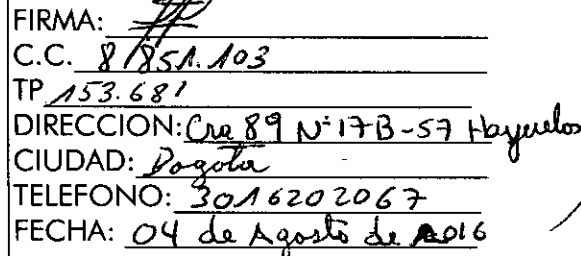 FIRMA:
C.C. 8'851.103
TP 153.681
DIRECCION: Cra 89 N° 17B-57 Hayuelos
CIUDAD: Bogota
TELEFONO: 3016202067
FECHA: 04 de Agosto de 2016